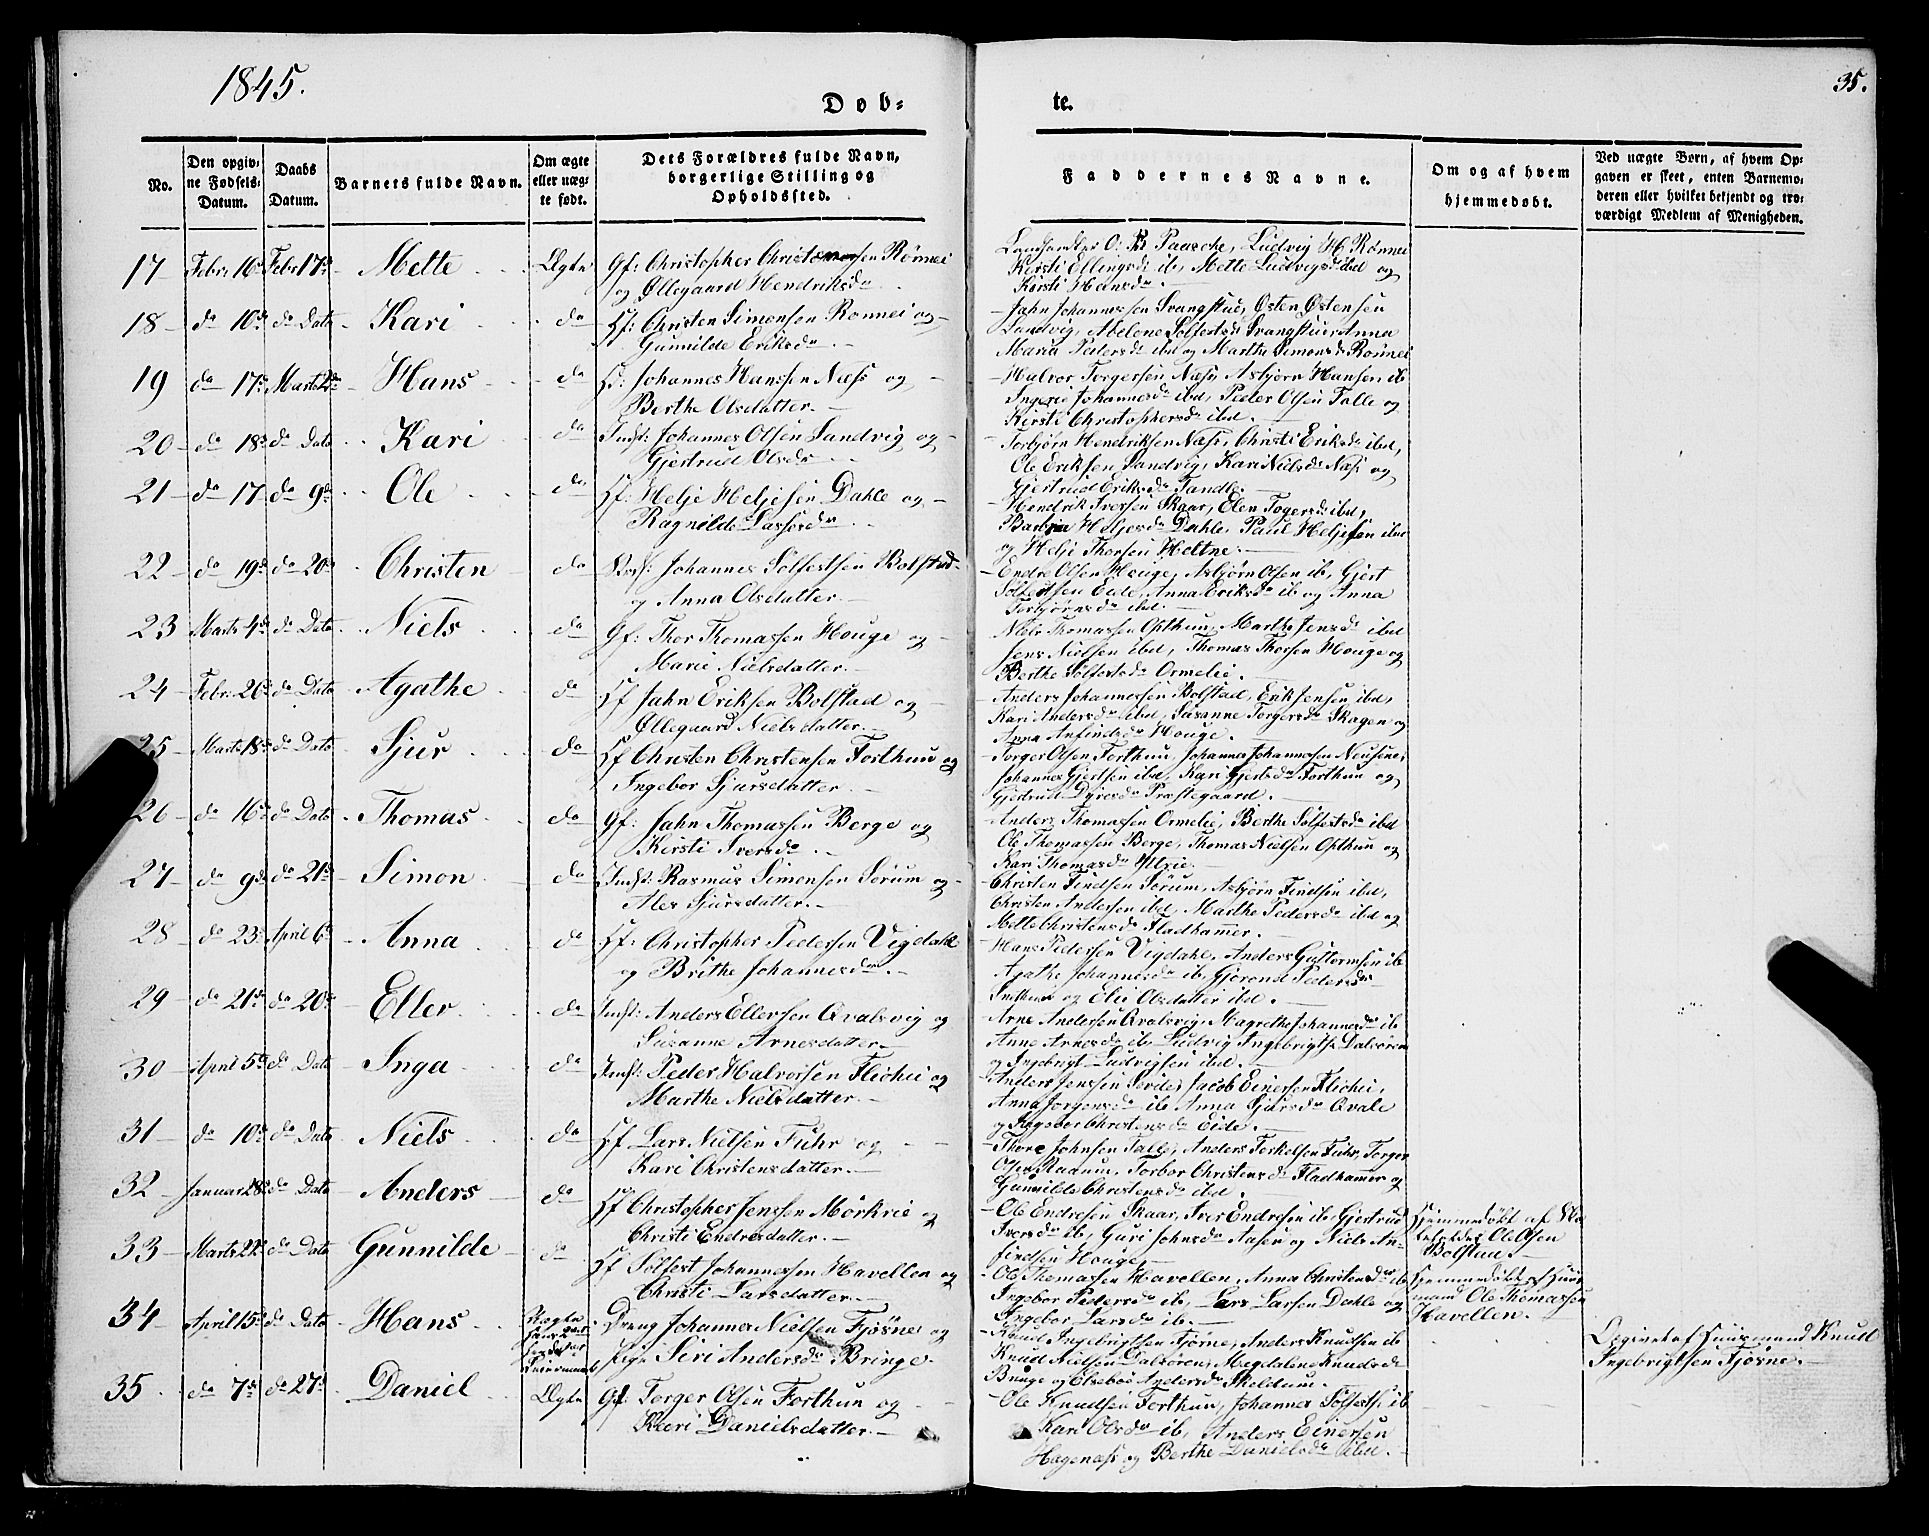 1845.
35.
Døb-
te.
No.
Den opgiv-
ne Fødsels-
Datum.
Daabs
Datum.
Barnets fulde Navn.
Om ægte
eller uæg-
te født.
Dets Forældres fulde Navn,
borgerlige Stilling og
Opholdssted.
Faddernes Navne.
Om og af hvem
hjemmedøbt.
Ved uægte Børn, af hvem Op-
gaven er skeet, enten Barnemo-
deren eller hvilket bekjendt og tro-
værdigt Medlem af Menigheden.
17 Febr: 16de Febr 17de Mette Ægte Gf: Christopher Christensen Rønnei
og Øllegaard Hendriksdr
O: Paasche, Ludvig H. Rønnei
Kirsti Ellingsdr ib, Mette Ludvigsdr ibd og
Kirsti Hansdr.
18 do 10de do Dato Kari do Hf: Christen Simonsen Rønnei og
Gunnilde Eriksdr
Jahn Johannessen Svangstue, Østen Østensen
Sandvig, Abelone Solfestsdr Svangstue, Anna
Maria Pedersdr ibd og Marthe Simonsdr Rønnei
19 do 17de Marts 2de Hans do Hf: Johannes Hanssen Næss og
Berthe Olsdatter.
Halvor Torgersen Næss, Asbjørn Hansen ib
Ingerie Johannesdr ibd, Peder Olsen Talle og
Kirsti Christophersdr ibd.
20 do 18de do Dato Kari do Indst: Johannes Olsen Sandvig og
Gjertrud Olsdr
Torbjørn Hendriksen Næss, Christi Eriksdr ibd,
Ole Eriksen Sandvig, Kari Nielsdr Næss og
Gjertrud Eriksdr Tandle.
21 do 17 do 9de Ole do Hf: Helje Heljesen Dahle og
Ragnilde Lassesdr
Hendrik Iversen Skaar, Elen Togersdr ibd,
Heljesdr Dahle, Paul Heljesen ibd
og Helje Thorsen Heltne.
22 do 19de do 20de Christen do Johannes Solfestsen Bolstad
og Anna Olsdatter.
Endre Olsen Houge, Asbjørn Olsen ib, Gjert
Solfestsen Eide, Anna Eriksdr ib og Anna
Torbjørnsdr ibd.
23 Marts 4de do Dato Niels do Gf: Thor Thomassen Houge og
Marie Nielsdatter.
Niels Thomassen Opthun, Marthe Jensdr ibd
Jens Nielsen ibd, Thomas Thorsen Houge og
Berthe Solfestsdr Ormelie.
24 Febr: 26de do Dato Agathe do Hf Jahn Eriksen Bolstad og
Øllegaard Nielsdatter.
Anders Johannessen Bolstad, Erik Jensen ibd,
Kari Andersdr ibd, Susanne Torgersdr Skagen og
Anna Anfindsdr Houge.
25 Marts 18de do Dato Sjur do Hf Christen Christensen Forthun og
Ingebor Sjursdatter.
Torger Olsen Forthun, Johannes Johannessen
Johannes Gjertsen ibd, Kari Gjertsdr Forthun og
Gjertrud Præstegaard.
26 do 16de do Dato Thomas do Gf: Jahn Thomassen Berge og
Kirsti Iversdr
Anders Thomassen Ormelie, Berthe Solfestsdr ibd
Ole Thomassen Berge, Thomas Nielsen Opthun og
Kari Thomasdr Yttrie.
27 do 9de do 21de Simon do Indst: Rasmus Simonsen Sørum og
Ales Sjursdatter.
Christen Findsen Sørum, Asbjørn Findsen ibd,
Christen Andersen ibd, Marthe Pedersdr ibd og
Mette Christensdr Fladhammer.
28 do 23de April 6te Anna do Hf: Christopher Pedersen Vigdahl
og Brithe Johannesdr.
Hans Pedersen Vigdahl, Anders Guttormsen ib
Agathe Johannesdr ib, Pedersdr
og Eli Olsdatter ibd.
29 do 21de do 20de Eller do Indst: Anders Ellersen Qvalsvig og
Susanne Arnesdatter.
Arne Andersen Qvalsvig, Magrethe Johannesdr ib
Anne Arnesdr ib, Ludvig Ingebrigts. Dalsøren
og Ingebrigt Ludvigsen ibd.
30 April 5te do Dato Inga do Indst: Peder Halvorsen Flichii og
Marthe Nielsdatter.
Anders Jenssen Jacob Einersen Flichii,
Anna Jørgensdr ib, Anna Sjursdr Qvale
og Ingebor Christensdr Eide.
31 do 10de do Dato Niels do Hf Lars Nielsen Fuhr og
Kari Christensdatter.
Thore Johnsen Talle, Anders Torkelsen Fuhr, Torger
Olsen Torbor Christensdr Fladhammer og
Gunnilde Christensdr ibd.
32 Januar 28de do Dato Anders do Hf Christopher Jenssen Mørkrie og
Christi Endresdatter.
Ole Endresen Skaar, Iver Endresen ib, Gjertrud
Iversdr ib, Guri Johnsdr Aasen og Niels An-
findsen Houge.
Hjemmedøbt af
Ole Olsen
Bolstad.
33 Marts 22de do Dato Gunnilde do Hf Solfest Johannessen Havellen og
Christi Larsdatter.
Ole Thomassen Havellen, Anna Christensdr ib
Ingebor Pedersdr ib, Lars Larsen Dahle og
Ingebor Larsdr ib.
Hjemmedøbt af Huus-
mand Ole Thomassen
Havellen.
34 April 15de do Dato Hans Uægte
Dreng Johannes Nielsen Fjøsne og
Pige Siri Andersdr Bringe.
Knud Ingebrigtsen Fjøsne, Anders Knudsen ib
Knud Nielsen Dalsøren, Magdalene Knudsdr
Bringe og Elsebor Andersdr Skeldum.
Opgivet af Huusmand Knud
Ingebrigtsen Fjøsne.
35 do 7de do 27de Daniel Ægte Gf: Torger Olsen Forthun og
Kari Danielsdatter.
Ole Knudsen Forthun, Johannes Solfests. ib
Kari Olsdr ib, Anders Einersen
Hagenæss og Berthe Danielsdr ibd.